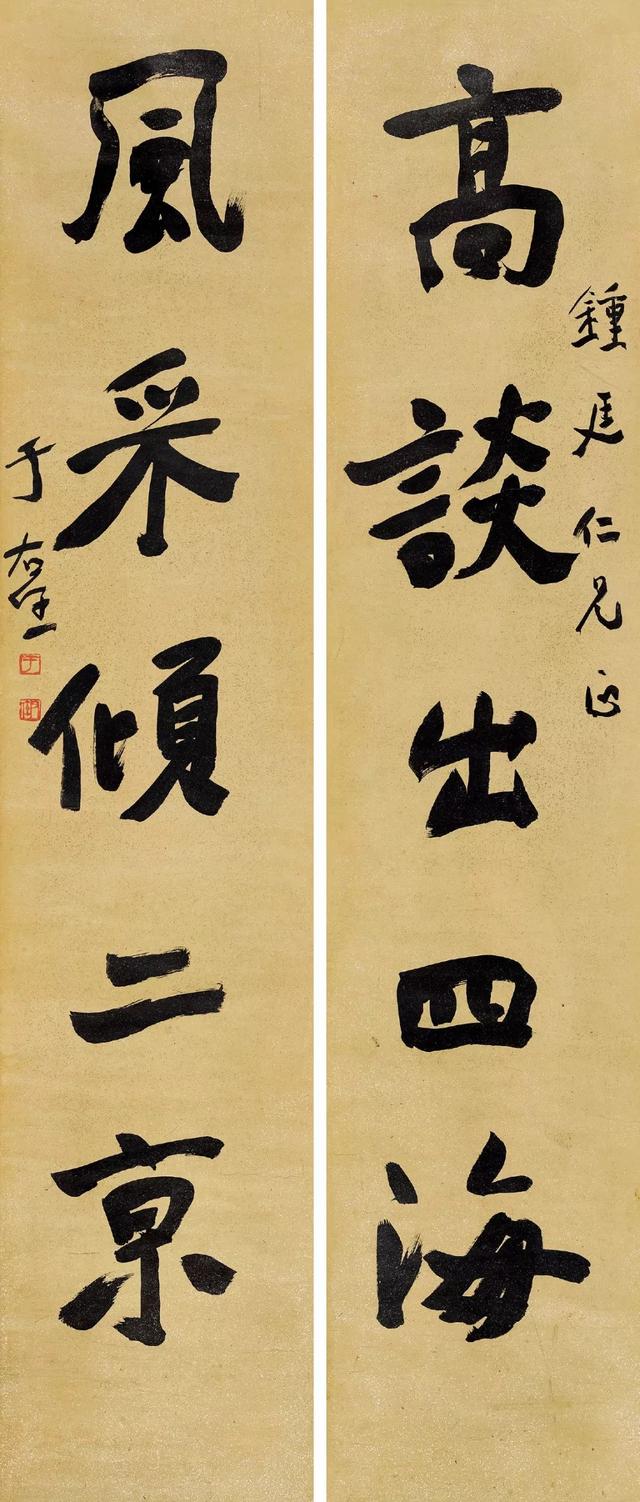 鍾建仁兄正
高談出四海
風采傾二京
于右任